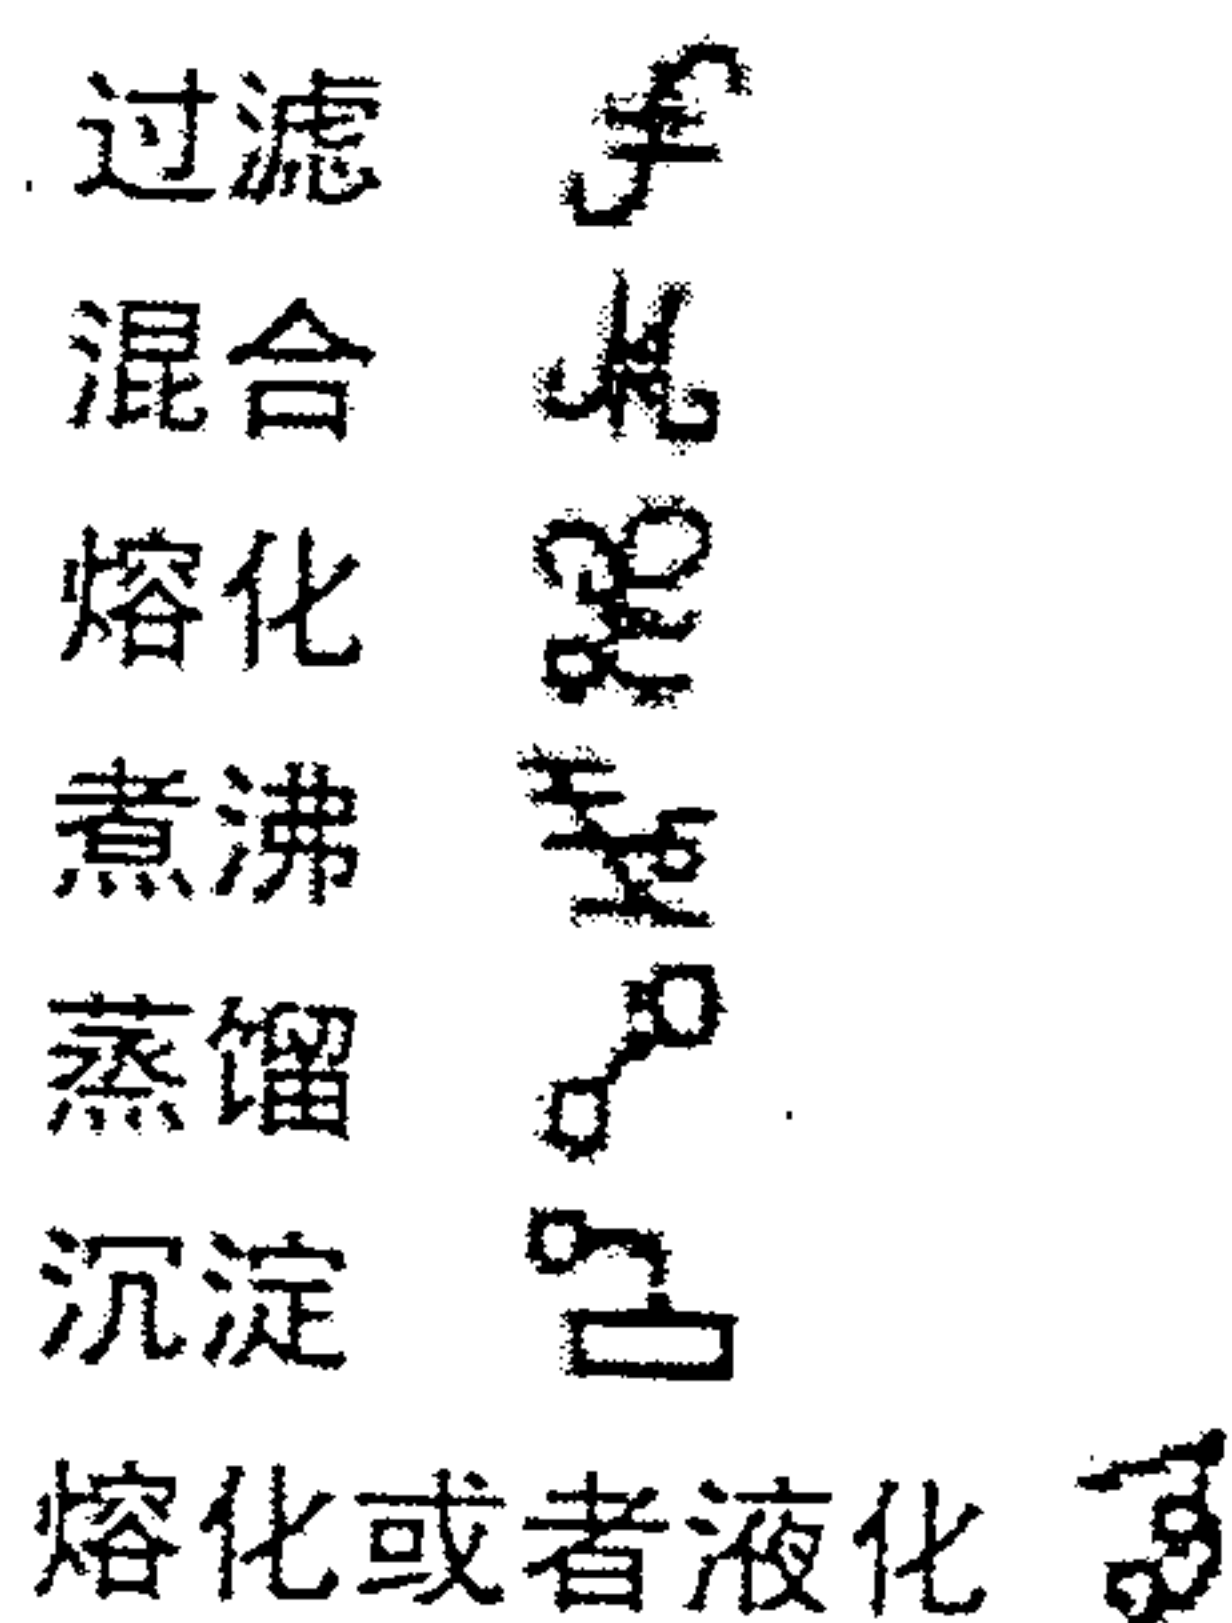 过滤
混合
熔化
煮沸
蒸馏
沉淀
熔化或者液化